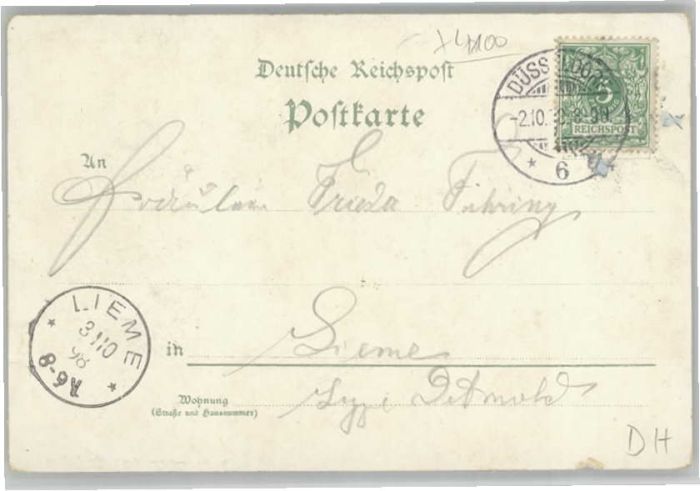 Deutsche Reichspost
Postkarte
DÜSSELDORF
-2.10. 8-9N
* 6 *
5
REICHSPOST
An
Fräulein Frieda Fehring
LIEME
3 10
98
*6-8*
in Lieme
Wohnung
(Straße und Hausnummer)
Detmold
DH